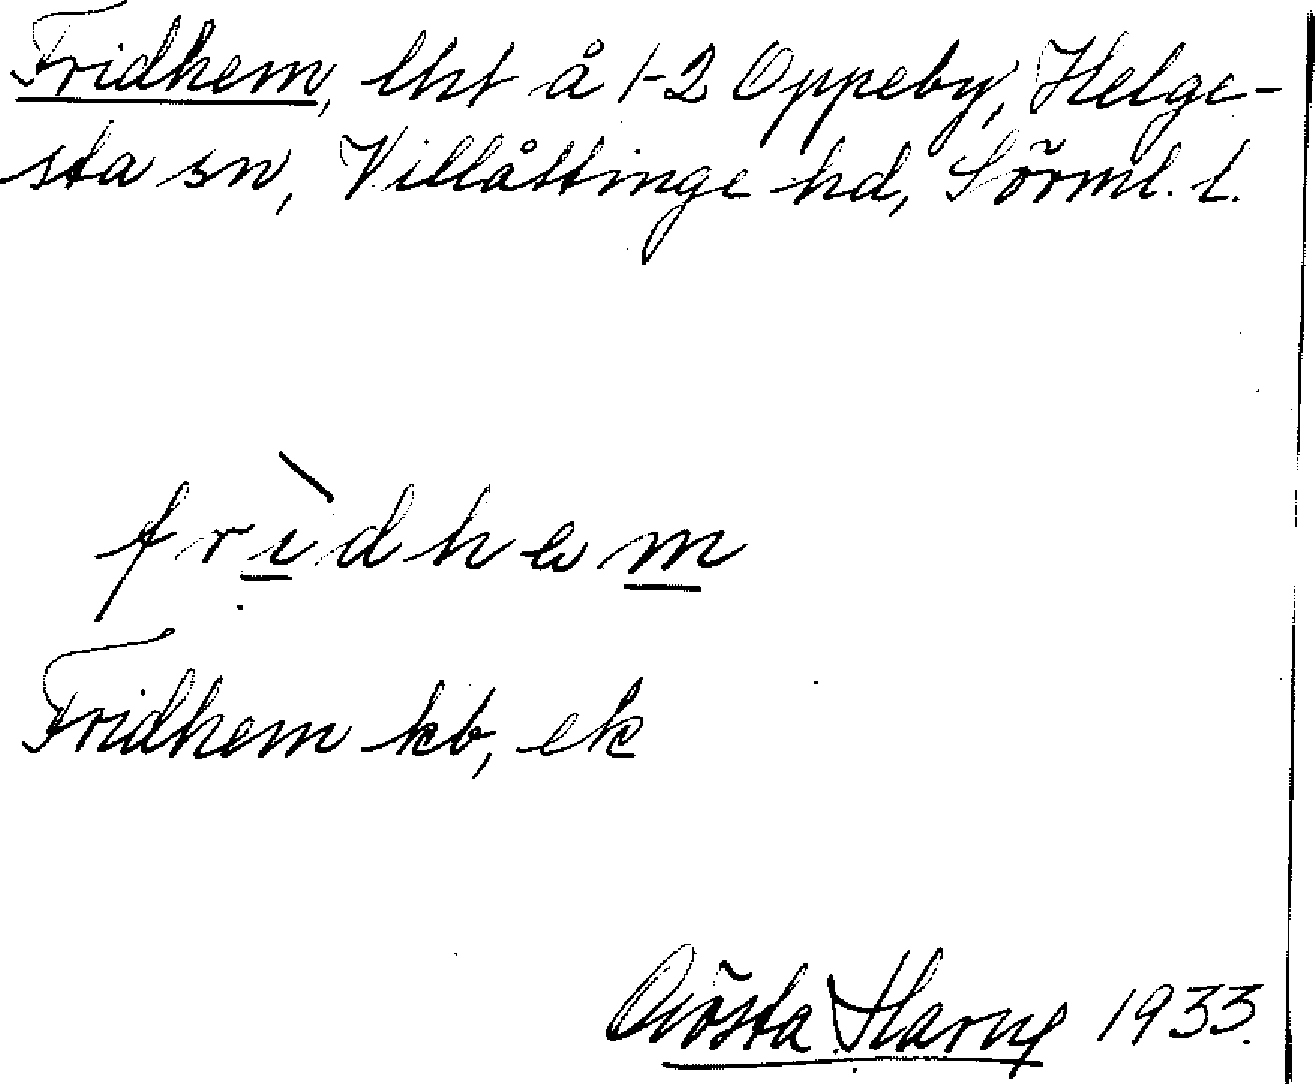 Fridhem, lht å 1-2 Oppeby, Helge-
sta sn, Villåttinge hd, Sörml. l.
fridhem
Fridhem kb, ek
Gösta 1933.